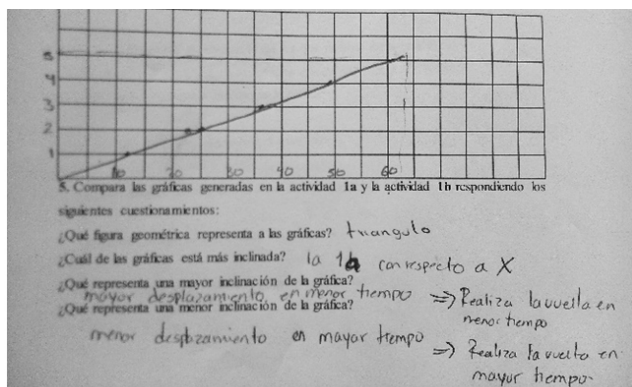 5
4
3
2
1
10 20 30 40 50 60
5. Compara las gráficas generadas en la actividad 1a y la actividad 1b respondiendo los
siguientes cuestionamientos:
¿Qué figura geométrica representa a las gráficas? triangulo
¿Cuál de las gráficas está más inclinada? la 1a con respecto a X
¿Qué representa una mayor inclinación de la gráfica?
mayor desplazamiento en menor tiempo => Realiza la vuelta en
menor tiempo
¿Qué representa una menor inclinación de la gráfica?
menor desplazamiento en mayor tiempo
=> Realiza la vuelta en
mayor tiempo.